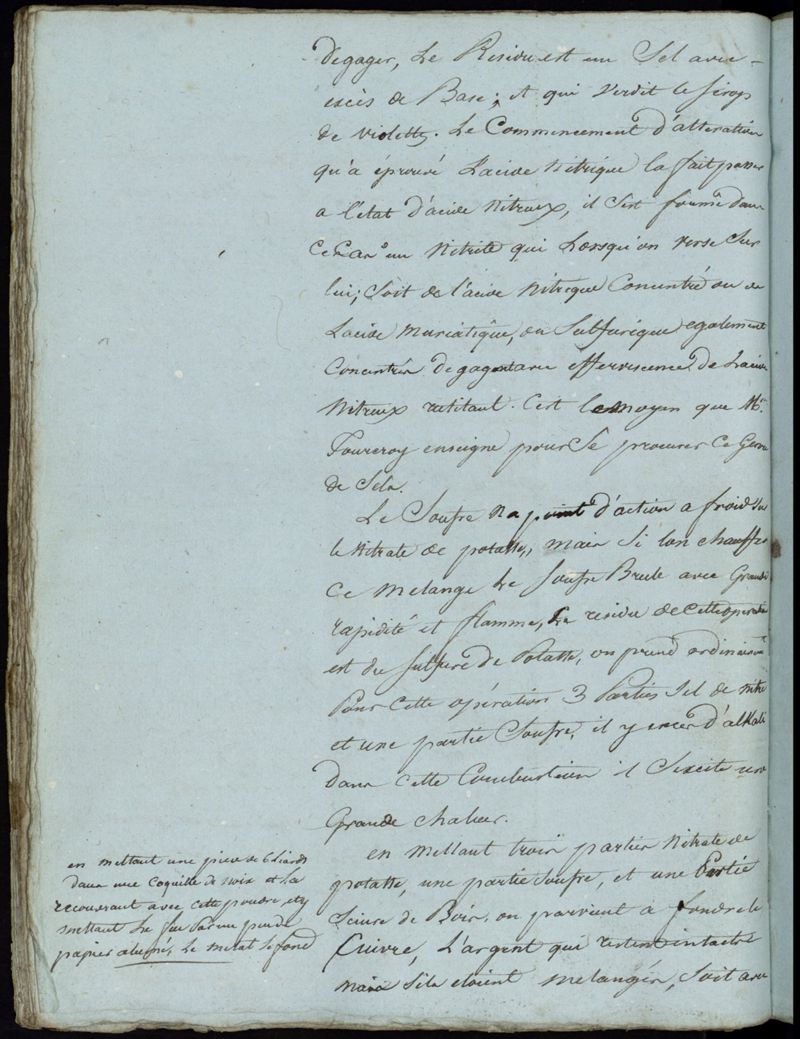 degager, Le Residu est un Sel avec
excès de Base; et qui verdit le sirop
de violettes. Le Commencement d'alteration
qu'a éprouvé L'acide Nitrique la fait passer
a l'etat d'acide Nitreux, il s'est formé dans
ce un Nitrite qui Lorsqu'on verse sur
lui; soit de l'acide Nitrique Concentré ou de
L'acide muriatique, ou Sulfurique egalement
Concentrés degagent avec effervescence de L'acide
Nitreux rutilant. C'est le moyen que Mr.
Fourcroy enseigne pour se procurer ce Genre
de Sels.
Le Soufre n'a point d'action a froid sur
le Nitrate de potasse, mais si l'on chauffe
ce melange le soufre Brule avec Grande
rapidité et flamme, Le residu de cette operation
est du sulfure de Potasse, on prend ordinairemt
Pour cette opération 3 Parties Sel de nitre
et une partie Soufre, il y d'alkali
dans cette Combustion il s'excite une
Grande chaleur.
en mettant trois parties Nitrate de
potasse, une partie Soufre, et une Partie
Sciure de Bois, on parvient à fondre le
Cuivre, L'argent qui restent intacts
mais s'ils etoient melangés, soit avec
en mettant une piece de 6 Liards
dans une Coquille de noix et La
recouvrant avec cette poudre, et y
mettant Le feu Par un peu de
papier alumé, Le metal se fond